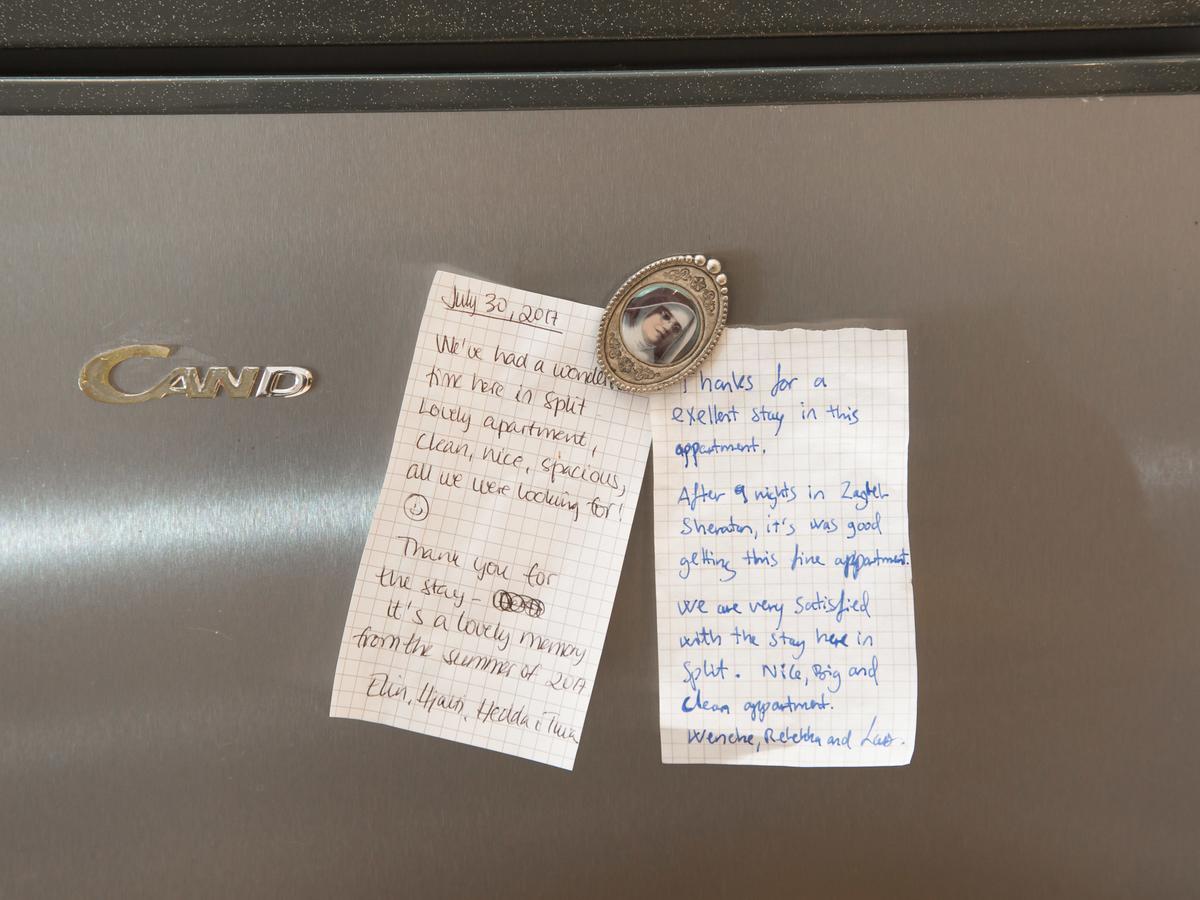 CAND
July 30, 2017
We've had a wonder
time here in split
Lovely apartment,
clean, nice, spacious,
all we were looking for!
Thank you for
the stay -
it's a lovely memory
from the summer of 2017
Elin, Hjalti, Hedda & Tuva
Thanks for a
exellent stay in this
appartment.
After 9 nights in Zagreb
Sheraton, it's was good
getting this fine appartment.
we are very satisfied
with the stay here in
Split. Nice, Big and
Clean appartment.
Wenche, Rebekka and Lars.